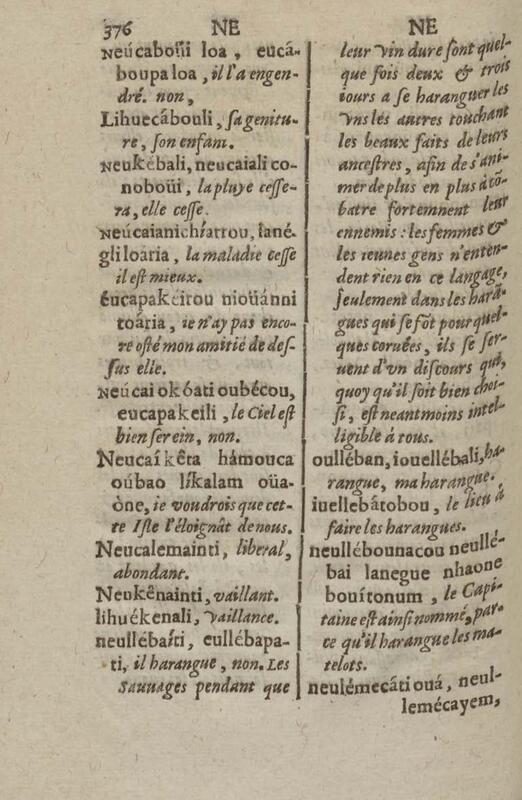 376 NE NE
Neúcaboüi loa, eucá-
boupa loa, il l'a engen-
dré. non,
Lihuecábouli, sa genitu-
re, son enfant.
Neukébali, neucaiali co-
noboüi, la pluye cesse-
ra, elle cesse.
Neúcaianichíatrou, lané-
gliloária, la maladie cesse
il est mieux.
éucapakeirou nioüánni
toária, ie n'ay pas enco-
re osté mon amitié de des-
sus elle.
Neúcai okóati oubécou,
eucapakeili, le Ciel est
bien serein, non.
Neucaí kêta hámouca
oúbao líkalam oüa-
òne, ie voudrois que cet-
te Isle s'éloignât de nous.
Neucalemainti, liberal,
abondant.
Neukênainti, vaillant.
lihuékenali, vaillance.
neullébaíti, eullébapa-
ti, il harangue, non. Les
Sauuages pendant que
leur vin dure sont quel-
que fois deux & trois
iours a se haranguer les
vns les autres touchant
les beaux faits de leurs
ancestres, afin de s'ani-
mer de plus en plus à cõ-
batre fortemnent leur
ennemis : les femmes &
les ieunes gens n'enten-
dent rien en ce langage,
seulement dans les hará-
gues qui se fõt pour quel-
ques coruées, ils se ser-
uent d'vn discours qui,
quoy qu'il soit bien choi-
si, est neantmoins intel-
ligible á tous.
oulléban, iouellébali, ha-
rangue, ma harangue.
iuellebâtobou, le lieu à
faire les harangues.
neullébounacou neullé-
bai lanegue nhaone
bouítonum, le Capi-
taine est ainsi nommé, par-
ce qu'il harangue les ma-
telots.
neulémecáti ouá, neul-
lemécayem,